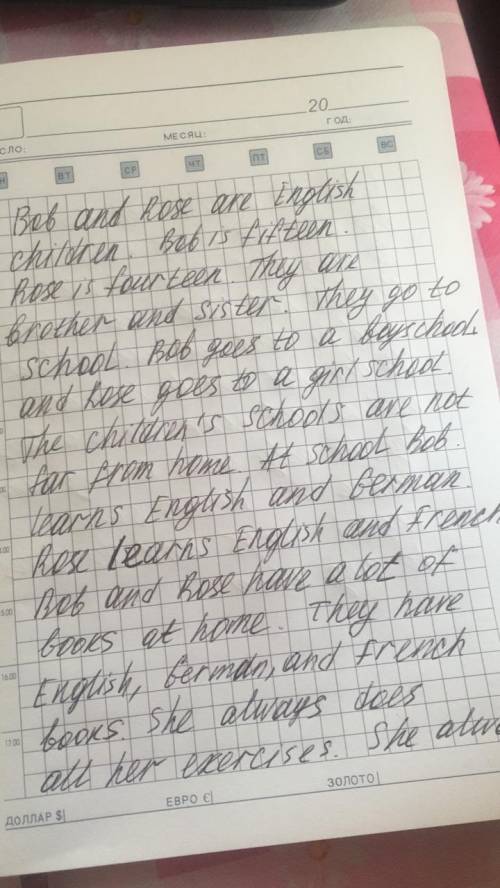 20
ГОД:
МЕСЯЦ:
СЛО:
Н ВТ СР ЧТ ПТ СБ ВС
Bob and Rose are English
children. Bob is fifteen.
Rose is fourteen. They are
brother and sister. They go to
school. Bob goes to a boyschool
and Rose goes to a girl school
The children's schools are not
far from home. At school Bob.
learns English and German.
Rose learns English and French
Bob and Rose have a lot of
books at home. They have
English, German, and French
books. She always does
all her exercises. She alwa
16.00
17.00
ДОЛЛАР $|
ЕВРО €|
ЗОЛОТО|